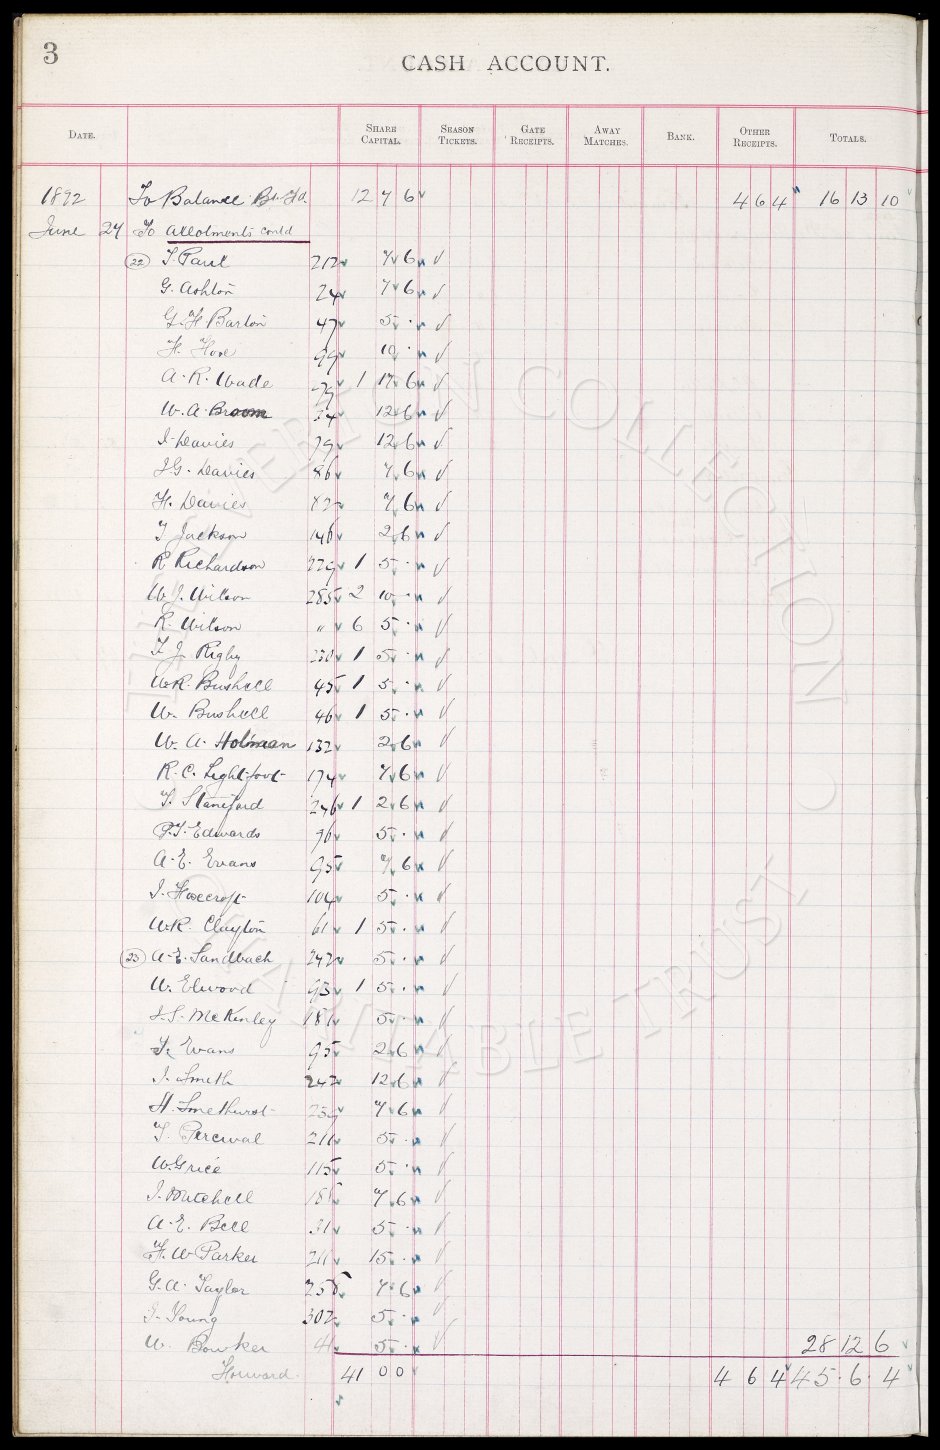 3
CASH ACCOUNT.
DATE. SHARE CAPITAL. SEASON TICKETS. GATE RECEIPTS. AWAY MATCHES. BANK. OTHER RECEIPTS. TOTALS.
1892 To Balance Bt. Fd. 12 7 6 4 6 4 16 13 10
June 24 To Allotments contd
22 T. Paul 212 7 6
G. Ashton 24 7 6
G. H Barton 47 5 .
H. Hoxe 99 10 .
A. R. Wade 1 17 6
W. A. Broom 34 12 6
J. Davies 79 12 6
J. G. Davies 86 7 6
H. Davies 82 7 6
T Jackson 146 2 6
R Richardson 229 1 5 .
W. J. Wilson 285 2 10 .
R. Wilson " 6 5 .
F. J. Rigby 230 1 5 .
W.R. Bushell 45 1 5 .
W. Bushell 46 1 5 .
W. A. Holman 132 2 6
R. C. Lightfoot 174 7 6
T. Staniford 246 1 2 6
P.T. Edwards 96 5 .
A. E. Evans 95 7 6
J. Howcroft 104 5 .
W.R. Clayton 61 1 5 .
23 A. E. Sandbach 242 5 .
W. Elwood 93 1 5 .
J. S. McKinley 181 5 .
Evans 95 2 6
J. Smith 242 12 6
H. Smethurst 239 7 6
T. Percival 211 5 .
W. Grice 115 5 .
J. Mitchell 185 7 6
A. E. Bell 31 5 .
F. W Parker 211 15 .
G. A. Taylor 258 7 6
J. Young 302 5 .
W. Bowker 41 5 . 28 12 6
Forward. 41 0 0 4 6 4 45 . 6 . 4
THE EVERTON COLLECTION
CHARITABLE TRUST